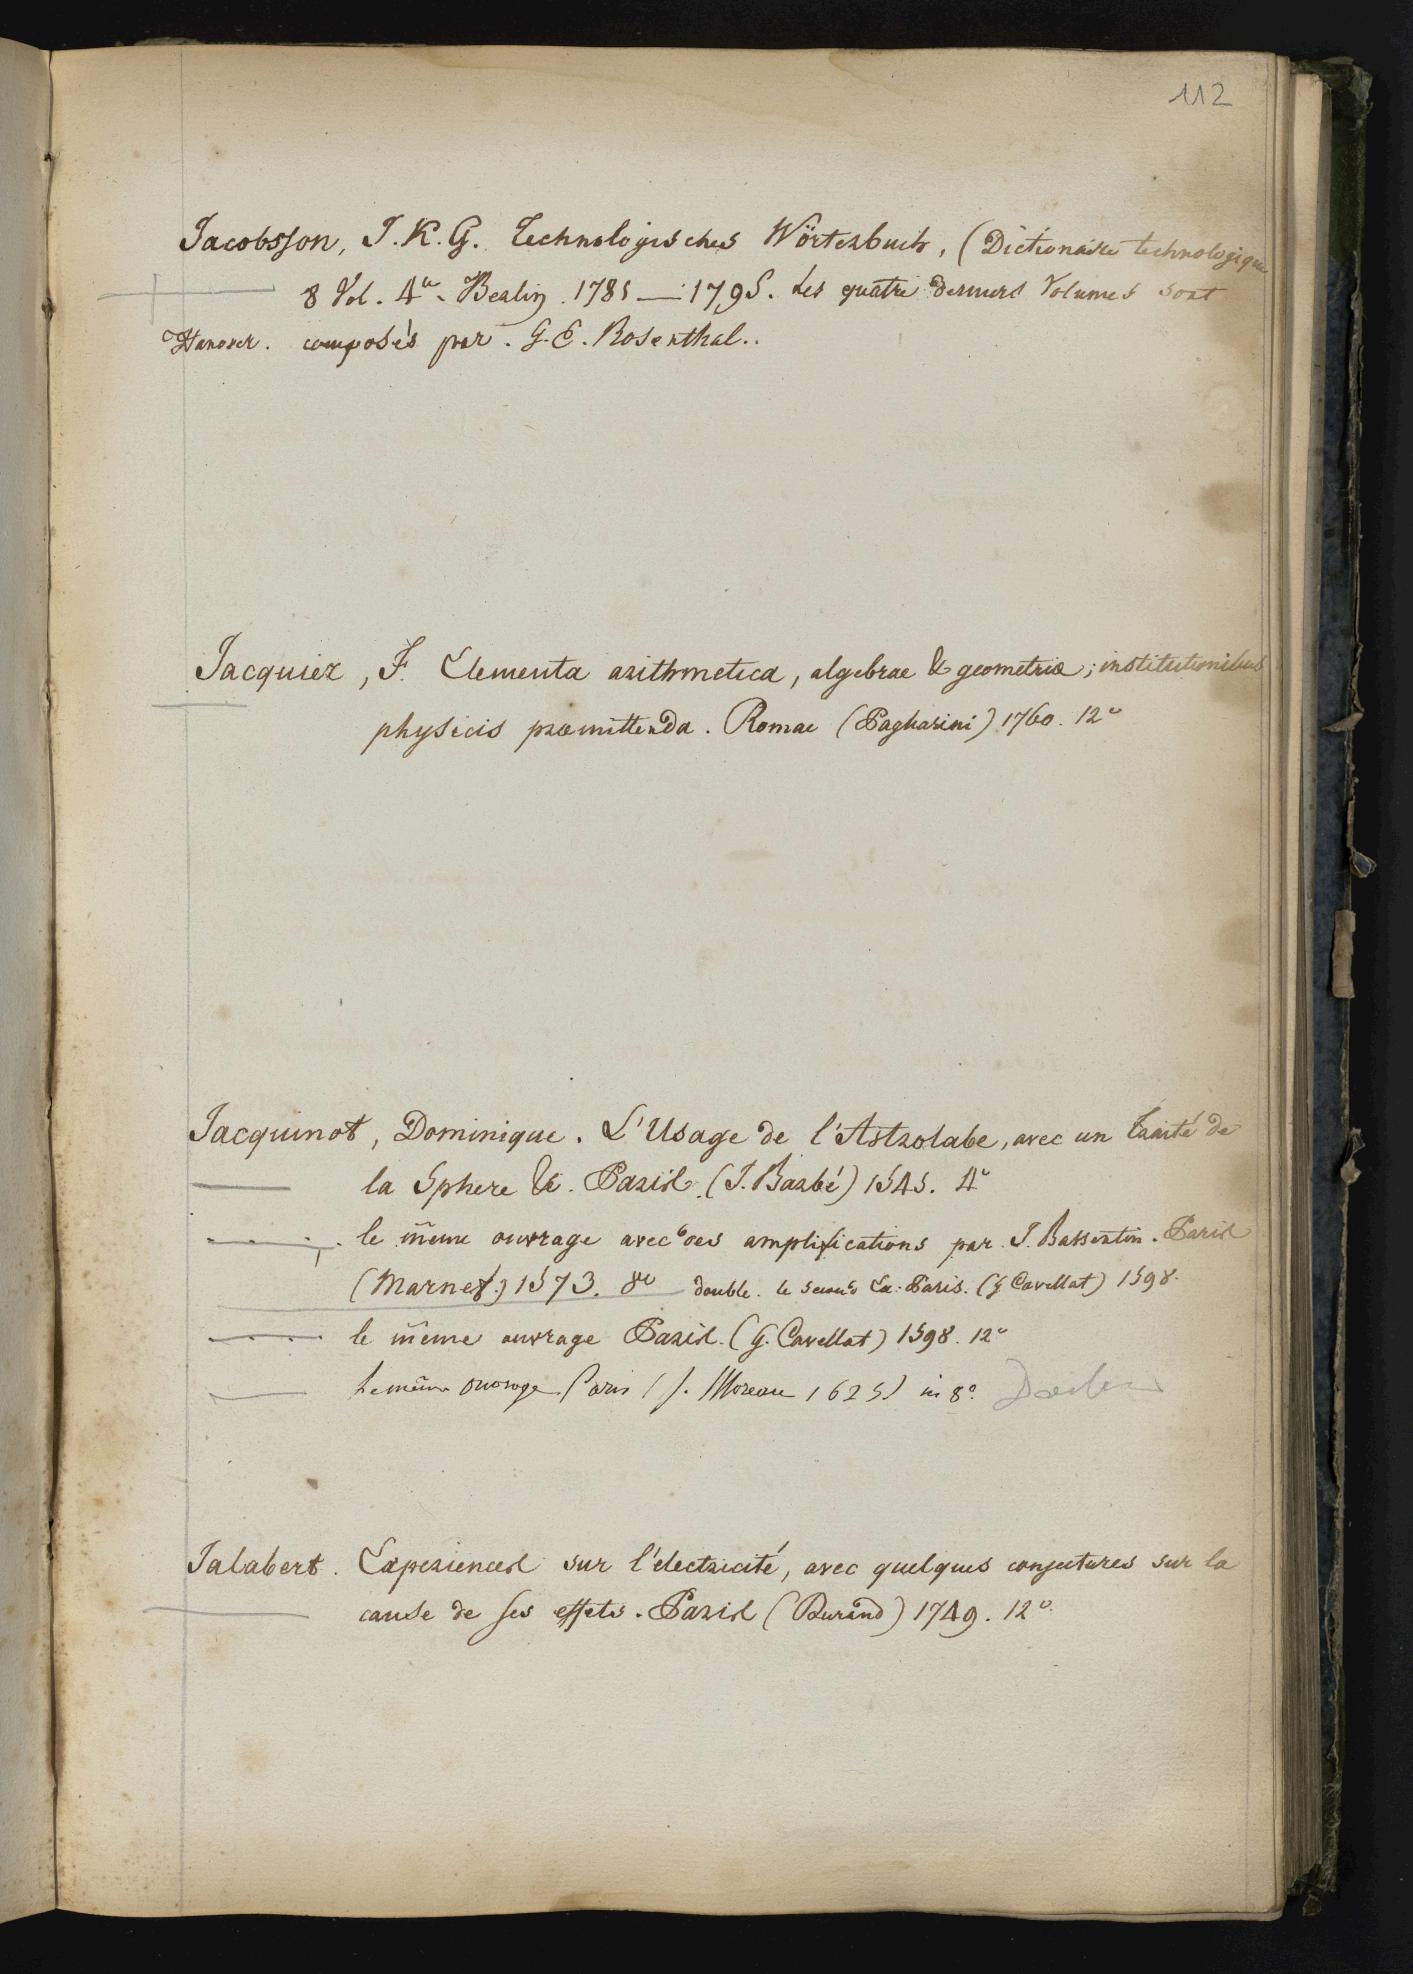 112
Jacobsson, J. K. G. Technologisches Wörterbuch, (Dictionaire technologique
8 Vol. 4to. Berlin. 1781 — 1795. Les quatre derniers Volumes sont
Hanover. composés par. G. E. Rosenthal..
Jacquier, F. Elementa arithmetica, algebrae & geometriæ; institutionibus
physicis præmittenda. Romae (Pagliarini) 1760. 12o
Jacquinot, Dominique. L'Usage de l'Astrolabe, avec un traité de
la Sphere &. Paris. (J. Barbé) 1545. 4o
le même ouvrage avec des amplifications par J. Bassentin. Paris
(Marnef.) 1573. 8vo double. le second Ex: Paris. (G Cavellat) 1598.
le même ouvrage Paris. (G. Cavellat) 1598. 12o
Le même ouvrage Paris (J. Moreau 1625) in 8o.
Jalabert. Experiences sur l'électricité, avec quelques conjectures sur la
cause de ses effets. Paris (Durand) 1749. 12o.